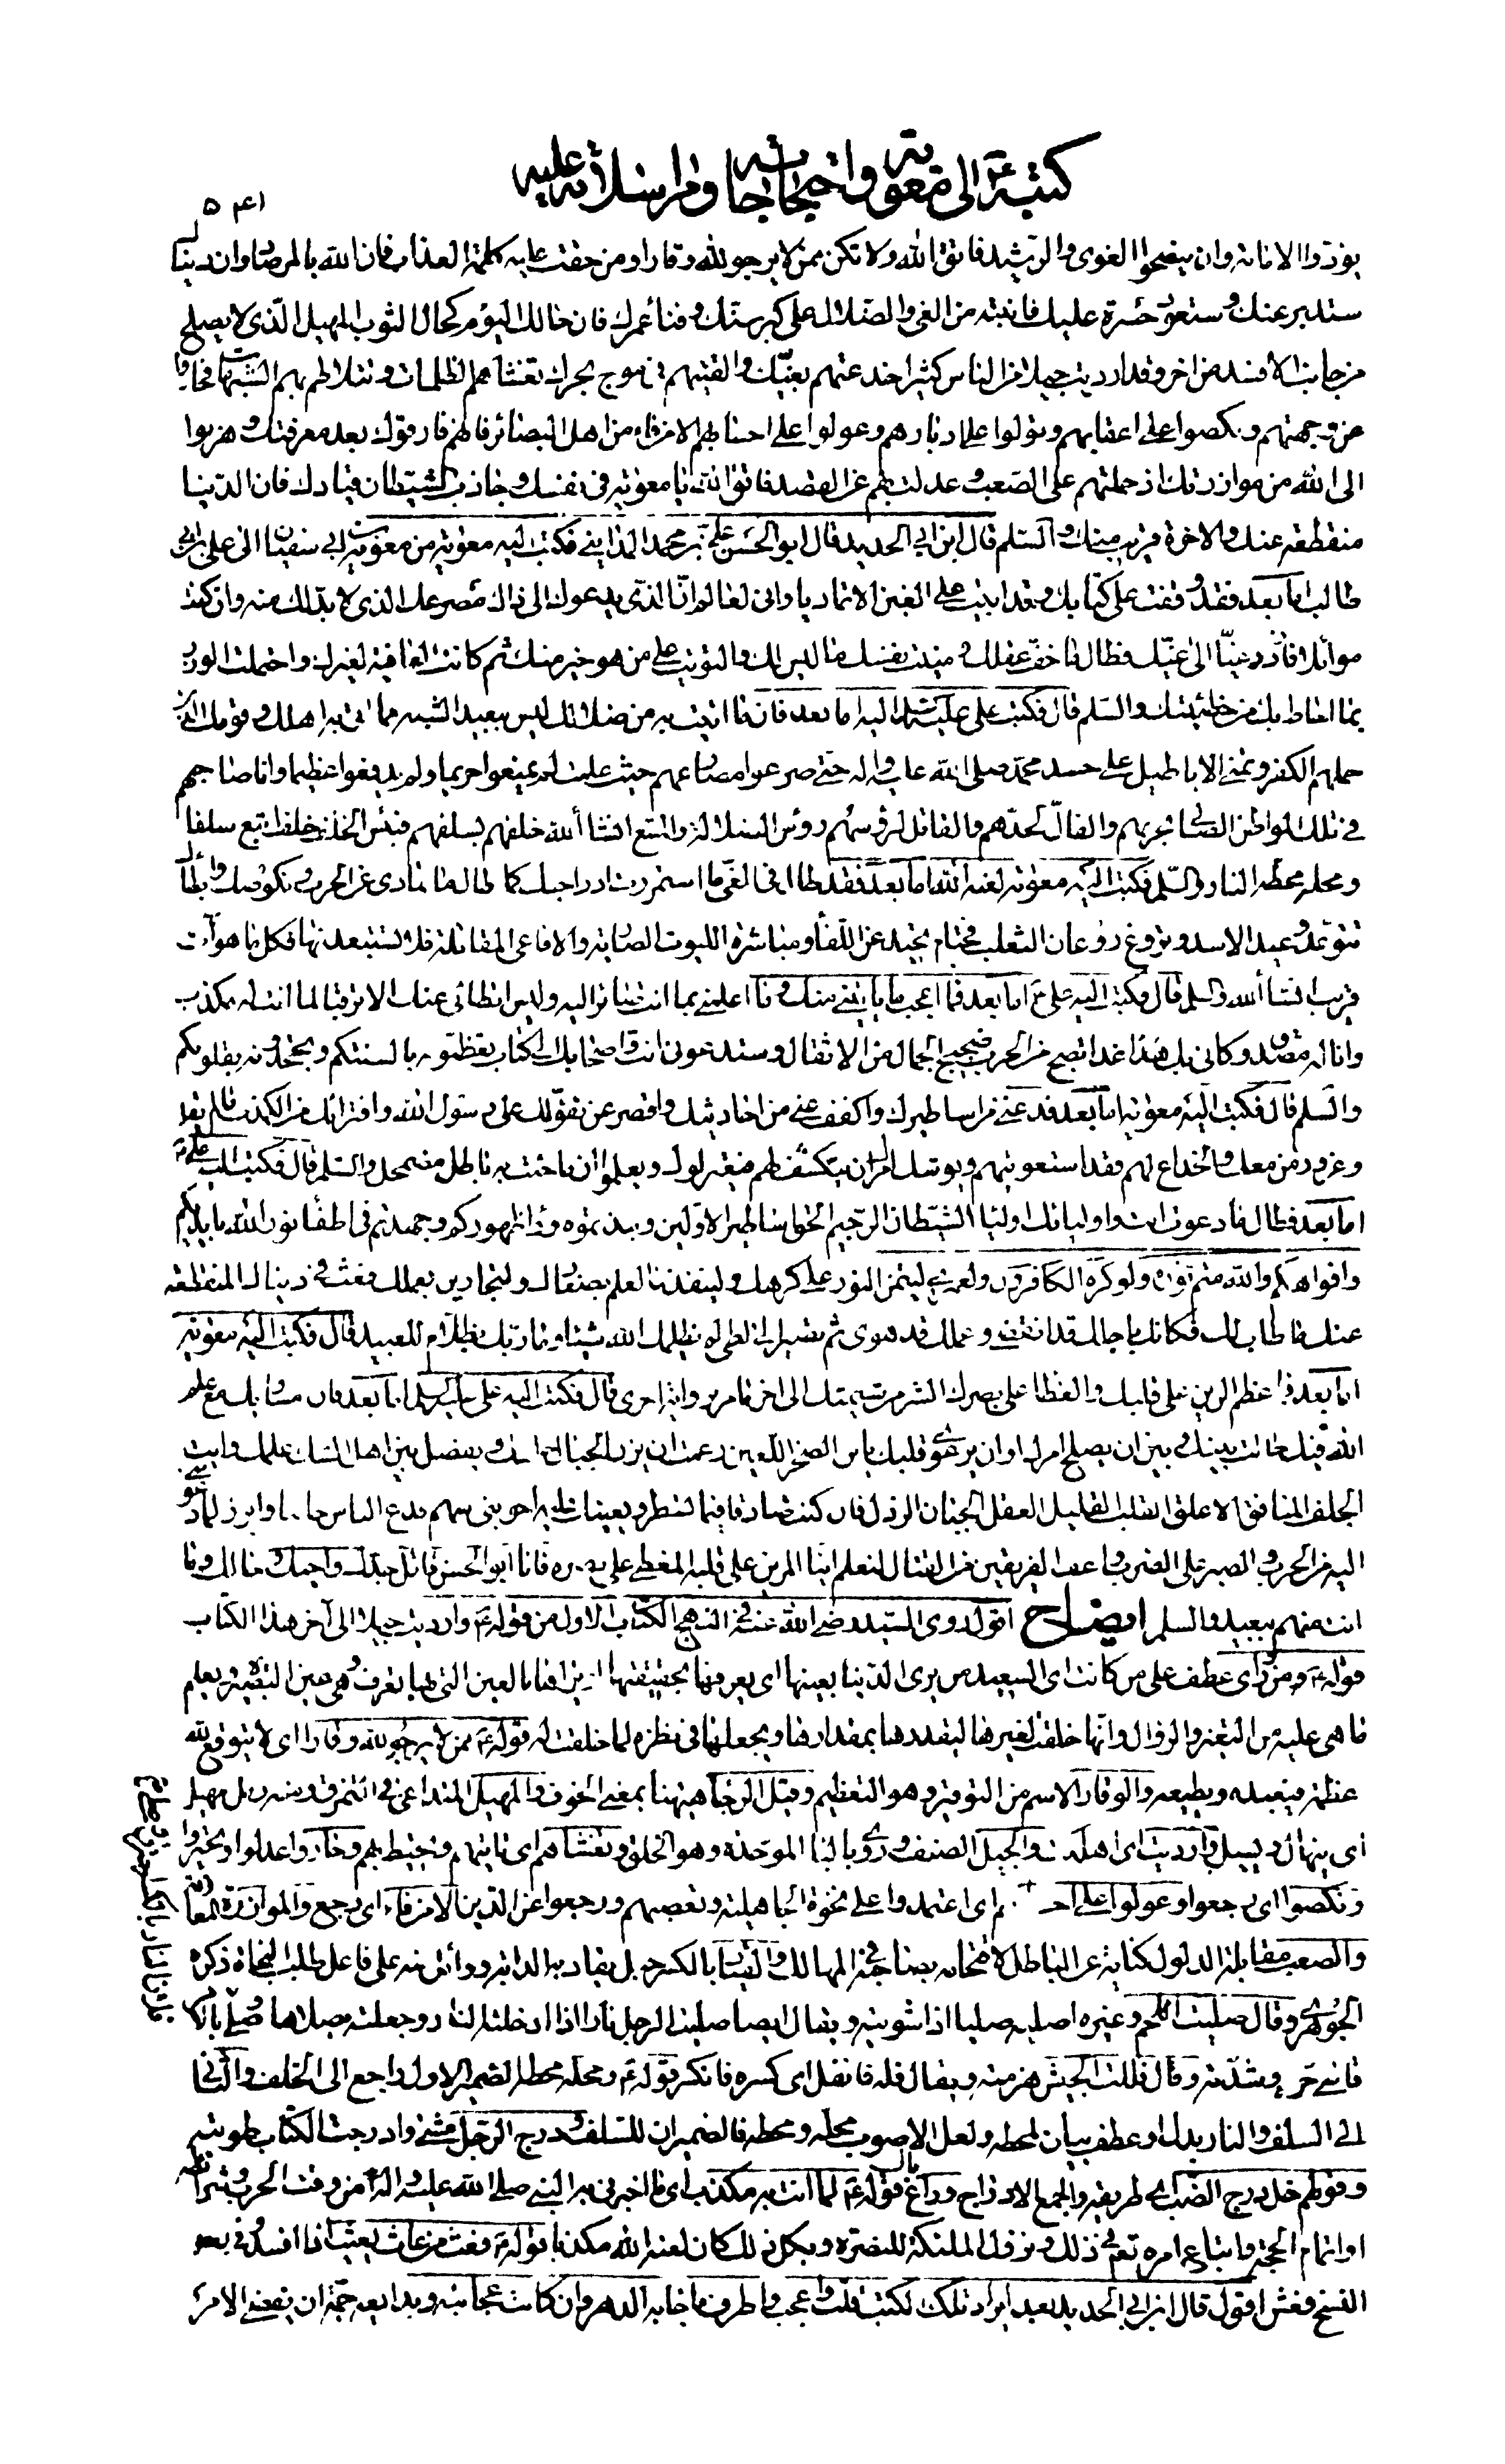 كتبه ع الى معوية واحتجاجاته ومراسلاته عليه
٥٤١
يؤدوا الامانة وان ينصحوا الغوى والرشيد فاتق الله ولا تكن ممن لا يرجو لله وقارا ومن حقت عليه كلمة العذاب فان الله بالمرصاد وان دنياك
ستدبر عنك وستعود حسرة عليك فانتبه من الغى والضلال على كبر سنك وفناء عمرك فان حالك اليوم كحال الثوب المهيل الذى لا يصلح
من جانب الا فسد من اخر وقد ارديت جيلا من الناس كثيرا خدعتهم بغيك والقيتهم فى موج بحرك تغشاهم الظلمات وتتلاطم بهم الشبهات فجاروا
عن وجهتهم ونكصوا على اعقابهم وتولوا على ادبارهم وعولوا على احسابهم الا من فاء من اهل البصائر فانهم فارقوك بعد معرفتك وهربوا
الى الله من موازرتك اذ حملتهم على الصعب وعدلت بهم عن القصد فاتق الله يا معوية فى نفسك وجاذب الشيطان قيادك فان الدنيا
منقطعة عنك والاخرة قريب منك والسلم قال ابن ابى الحديد قال ابو الحسن على بن محمد المداينى فكتب اليه معوية من معوية بن ابى سفيان الى على بن ابى
طالب اما بعد فقد وقفت على كتابك وقد ابيت على الغبن الا تماديا وانى لعالم ان الذى يدعوك الى ذلك مصرعك الذى لا بد لك منه وان كنت
موائلا فازدد غيا الى غيك فطال ما خف عقلك ومنيت نفسك ما ليس لك والتويت على من هو خير منك ثم كانت العاقبة لغيرك واحتملت الوزر
بما احاط بك من خطيئتك والسلم قال فكتب على عليه السلم اليه اما بعد فان ما اتيت به من ضلالك ليس ببعيد الشبه مما اتى به اهلك وقومك الذين
حملهم الكفر وتمنى الاباطيل على حسد محمد صلى الله عليه واله حتى صرعوا مصارعهم حيث علمت لم يمنعوا حريما ولم يدفعوا عظيما وانا صاحبهم
فى تلك المواطن الصالى بحربهم والفال لحدهم والقاتل لرؤسهم رؤس الضلالة والمتبع انشاء الله خلفهم بسلفهم فبئس الخلف خلف اتبع سلفا
ومحله محطه النار والسلم فكتب اليه معوية لعنه الله اما بعد فقد طال فى الغى ما استمررت ادراجك كما طال ما تمادى عن الحرب نكوصك وابطاؤك
تتوعد وعيد الاسد وتروغ روغان الثعلب فحتام تحيد عن اللقاء ومباشرة الليوث الضارية والافاعى المقاتلة فلا تستبعدنها فكل ما هو آت
قريب انشاء الله والسلم قال فكتب اليه على ع اما بعد فما اعجب ما ياتينى منك وما اعلمنى بما انت صائر اليه وليس ابطائى عنك الا ترقبا لما انت له مكذب
وانا له مصدق وكانى بك غدا تضج من الحرب ضجيج الجمال من الاثقال وستدعونى انت واصحابك الى كتاب تعظمونه بالسنتكم وتجحدونه بقلوبكم
والسلم قال فكتب اليه معوية اما بعد فدعنى من اساطيرك واكفف عنى من احاديثك واقصر عن تقولك على رسول الله وافترائك من الكذب ما لم يقل
وغرور من معك والخداع لهم فقد استغويتهم ويوشك امرك ان ينكشف لهم فيعتزلوك ويعلموا ان ما جئت به باطل مضمحل والسلم قال فكتب اليه على ع
اما بعد فطال ما دعوت انت واولياؤك اولياء الشيطان الرجيم الحق اساطير الاولين ونبذتموه وراء ظهوركم وجهدتم فى اطفاء نور الله بايديكم
وافواهكم والله متم نوره ولو كره الكافرون ولعمرى ليتمن النور على كرهك ولينفذن العلم بصغارك ولتجازين بعملك فعث فى دنياك المنقطعة
عنك ما طاب لك فكانك باجلك قد انقضى وعملك قد هوى ثم تصير الى لظى لم يظلمك الله شيئا وما ربك بظلام للعبيد قال فكتب اليه معوية
اما بعد فما اعظم الرين على قلبك والغطاء على بصرك الشره من شيمتك قال فكتب اليه على عليه السلم اما بعد فان مساويك مع علم
الله فيك حالت بينك وبين ان يصلح امرك او ان يرعوى قلبك يابن الصخر اللعين زعمت ان يزن الجبال حلمك ويفصل بين اهل الشك علمك وانت
الجلف المنافق الاغلف القلب القليل العقل الجبان الرذل فان كنت صادقا فيما تسطر ويعينك عليه اخو بنى سهم فدع الناس جانبا وابرز لما دعوتنى
اليه من الحرب والصبر على الضرب واعف الفريقين من القتال لتعلم اينا المرين على قلبه المغطى على بصره فانا ابو الحسن قاتل جدك واخيك وخالك وما
انت منهم ببعيد والسلم ايضاح اقول روى السيد رضى الله عنه فى النهج الكتاب الاول من قوله ع وارديت جيلا الى آخر هذا الكتاب
قوله ع ومن راى عطف على من كانت اى السعيد من يرى الدنيا بعينها اى يعرفها بحقيقتها او يراها بالعين التى بها تعرف وهى عين البصيرة ويعلم
ما هى عليه من التغير والزوال وانها خلقت لغيرها ليقدرها بمقدارها ويجعلها فى نظره لما خلقت له قوله ع ممن لا يرجو لله وقارا اى لا يتوقع لله
عظمة فيعبده ويطيعه والوقار الاسم من التوقير وهو التعظيم وقيل الرجاء ههنا بمعنى الخوف والمهيل المتداعى فى التمزق ومنه رمل مهيل
اى ينهال ويسيل وارديت اى اهلكت والجيل الصنف وروى بالباء الموحدة وهو الخلق وتغشاهم اى تاتيهم وتحيط بهم وجاروا عدلوا وتحيروا
ونكصوا اى رجعوا وعولوا على احسابهم اى اعتمدوا على نخوة الجاهلية وتعصبهم ورجعوا عن الدين الا من فاء اى رجع والموازرة المعاونة
والصعب مقابلة الذلول كناية عن الباطل لاقتحامه بصاحبه فى المهالك والقياد بالكسر حبل يقاد به الدابة ووائل منه على فاعل طلب النجاة ذكره
الجوهرى وقال صليت اللحم وغيره اصليه صليا اذا شويته ويقال ايضا صليت الرجل نارا اذا ادخلته النار وجعلته يصلاها وصلى بالامر
قاسى حره وشدته وقال فللت الجيش هزمته ويقال فله فانفل اى كسره فانكسر قوله ع ومحله محطه الضمير الاول راجع الى الخلف والثانى
الى السلف والنار بدل او عطف بيان لمحطه ولعل الاصوب محله ومحطه فالضميران للسلف ودرج الرجل مشى وادرجت الكتاب طويته
وقولهم خل درج الضب اى طريقه والجمع الادراج وراغ مال قوله ع لما انت به مكذب اى ما اخبرنى به النبى صلى الله عليه واله من وقت الحرب وشرائطه
او اتمام الحجة واتباع امره تعالى فى ذلك ونزول الملئكة للنصرة وبكل ذلك كان لعنه الله مكذبا قوله ع فعث من عاث يعيث اذا افسد وفى بعض
النسخ فعش اقول قال ابن ابى الحديد بعد ايراد تلك الكتب قلت واعجب واطرف ما جاء به الدهر وان كانت عجائبه وبدايعه جمة ان يفضى الامر